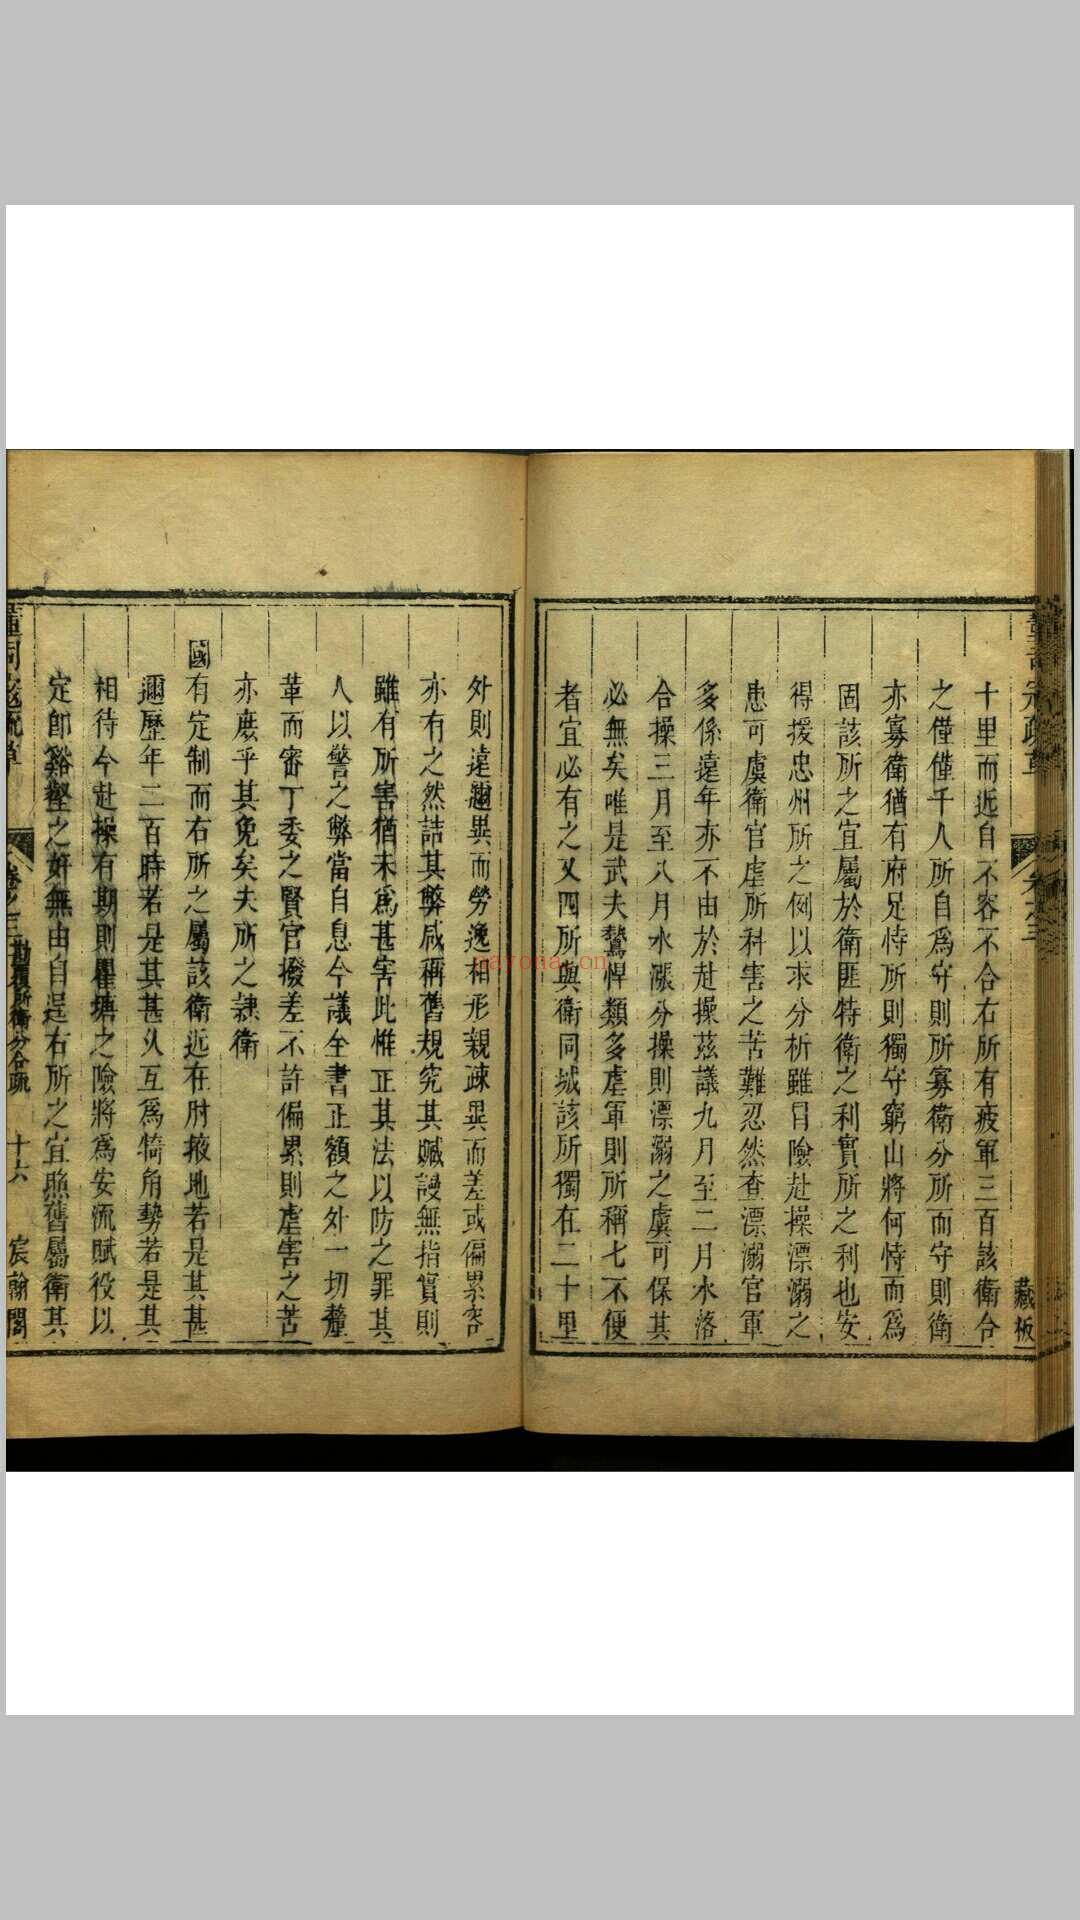 藏板
十里而近自不容不合右所有疲軍三百該衛合
之僅僅千人所自為守則所寡衛分所而守則衛
亦寡衛猶有府足恃所則獨守窮山將何恃而為
固該所之宜屬於衛匪特衛之利實所之利也安
得援忠州所之例以求分析雖冒險赴操漂溺之
患可虞衛官虐所科害之苦難忍然查漂溺官軍
多係遠年亦不由於赴操茲議九月至二月水落
合操三月至八月水漲分操則漂溺之虞可保其
必無矣唯是武夫鷙悍類多虐軍則所稱七不便
者宜必有之又四所與衛同城該所獨在二十里
外則遠邇異而勞逸相形親疎異而差或偏累容
亦有之然詰其弊咸稱舊規究其贓謾無指實則
雖有所害猶未為甚害此惟正其法以防之罪其
人以警之弊當自息今議全書正額之外一切釐
革而審丁委之賢官撥差不許偏累則虐害之苦
亦庶乎其免矣夫所之隷衛
國有定制而右所之屬該衛近在肘掖地若是其甚
邇歷年二百時若是其甚久互為犄角勢若是其
相待今赴操有期則瞿塘之險將為安流賦役以
定即谿壑之奸無由自逞右所之宜照舊屬衛其
卷之三 勘覆所衛分合疏 十六 宸翰閣
nayona.cn